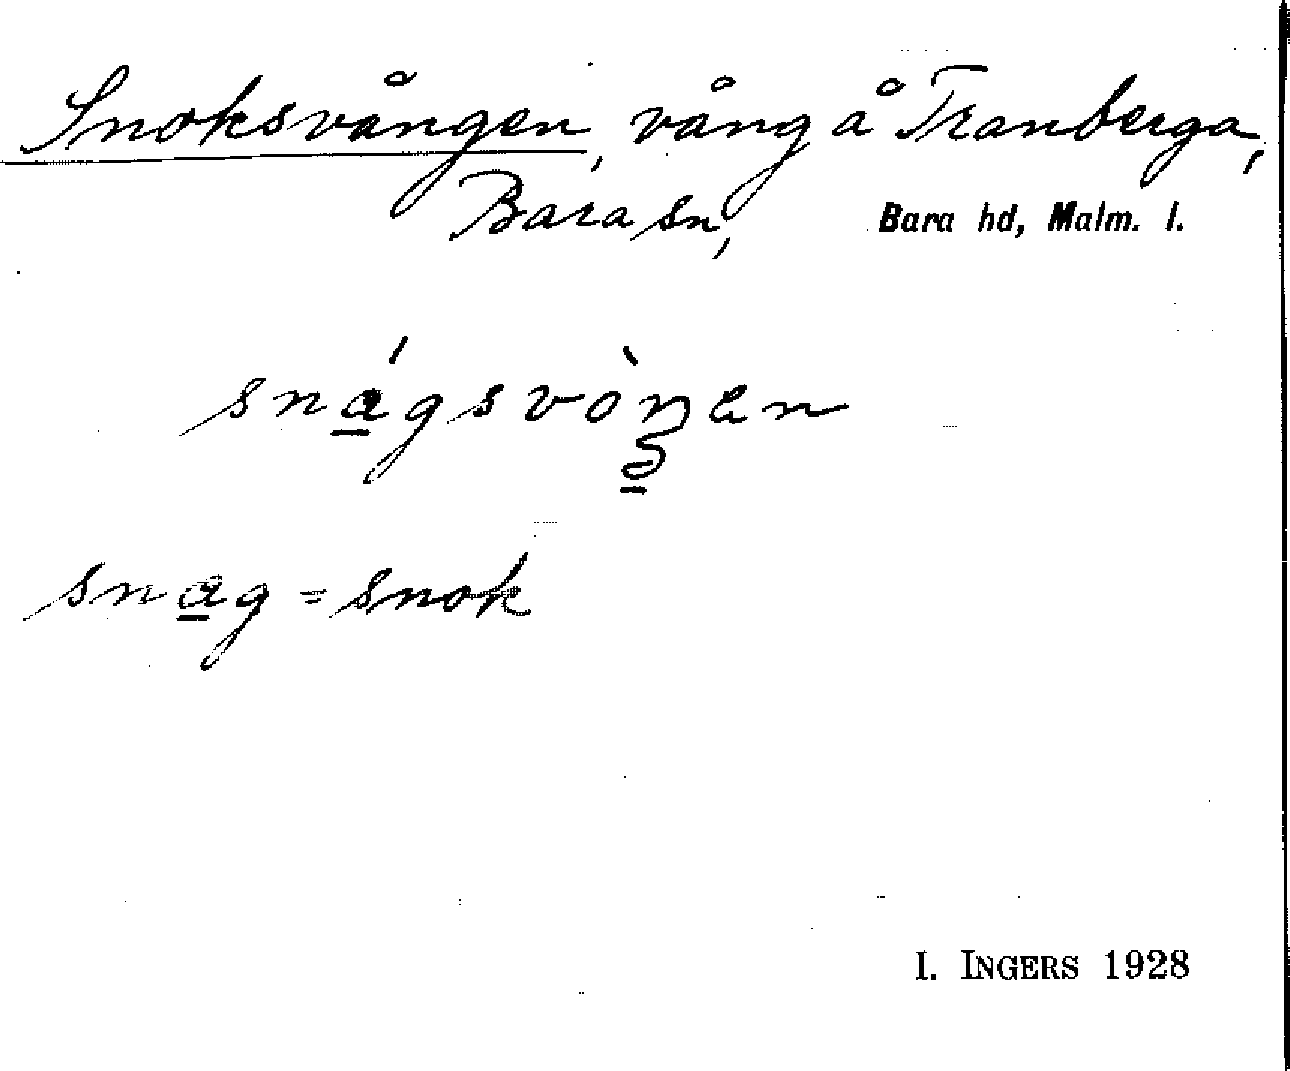 Snoksvången, vång å Tranberga,
Bara sn, Bara hd, Malm. l.
snágsvòŋen
snag = snok
I. INGERS 1928